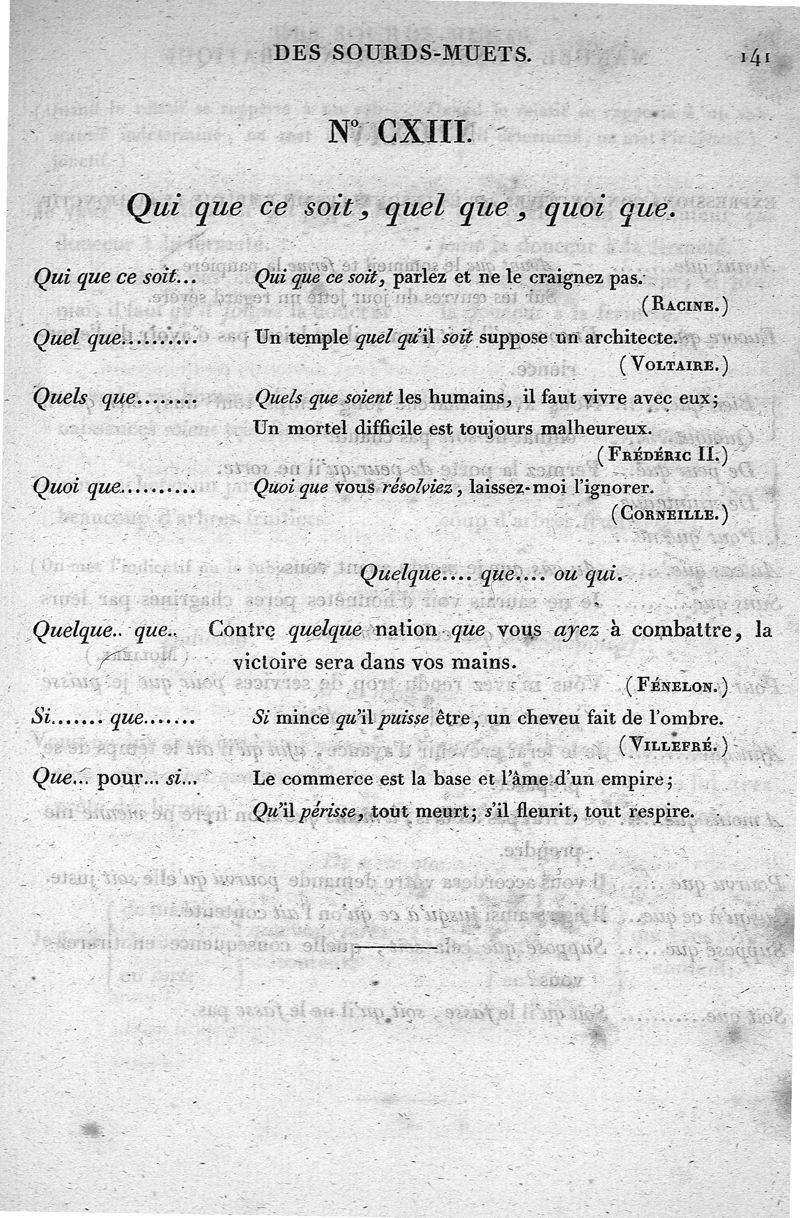 DES SOURDS-MUETS. 141
Nº CXIII.
Qui que ce soit, quel que, quoi que.
Qui que ce soit... Qui que ce soit, parlez et ne le craignez pas.
(RACINE.)
Quel que.......... Un temple quel qu'il soit suppose un architecte.
(VOLTAIRE.)
Quels que........ Quels que soient les humains, il faut vivre avec eux;
Un mortel difficile est toujours malheureux.
(FRÉDÉRIC II.)
Quoi que.......... Quoi que vous résolviez, laissez-moi l'ignorer.
(CORNEILLE.)
Quelque.... que.... ou qui.
Quelque.. que.. Contre quelque nation que vous ayez à combattre, la
victoire sera dans vos mains.
(FÉNELON.)
Si....... que....... Si mince qu'il puisse être, un cheveu fait de l'ombre.
(VILLEFRÉ.)
Que... pour... si... Le commerce est la base et l'âme d'un empire;
Qu'il périsse, tout meurt; s'il fleurit, tout respire.